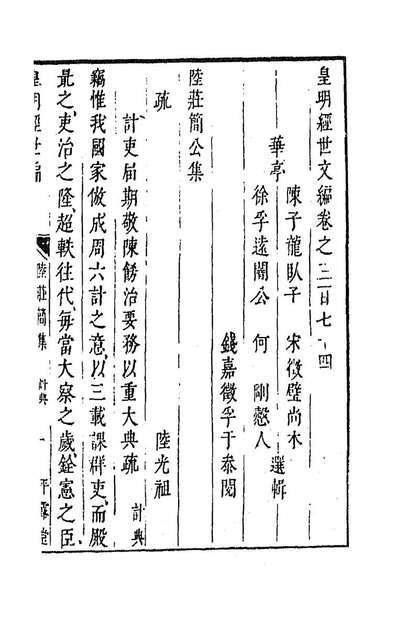 皇明經世文編卷之三百七十四
華亭
陳子龍臥子　宋徵璧尚木
選輯
徐孚遠闇公　何　剛慤人
錢嘉徵孚于參閱
陸莊簡公集
疏　陸光祖
計吏屆期敬陳飭治要務以重大典疏　計典
竊惟我國家倣成周六計之意、以三載課群吏、而殿
最之、吏治之隆、超軼往代、每當大察之歲、銓憲之臣
皇明經世編　陸莊簡集　計典　一　平露堂